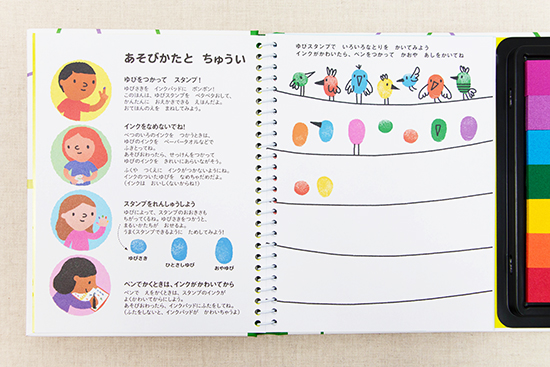 あそびかたと ちゅうい
ゆびをつかって スタンプ！
ゆびさきを インクパッドに ポンポン！
このほんは、ゆびスタンプを ペタペタおして、
かんたんに おえかきできる えほんだよ。
おてほんのえを まねしてみよう。
インクをなめないでね！
7つのいろのインクを つかうときは、
ゆびのインクを ペーパータオルなどで
ふきとってね。
あそびおわったら、せっけんをつかって
ゆびのインクを きれいにあらいながそう。
ふくや つくえに インクがつかないようにね。
インクのついたゆびを なめちゃだめだよ。
(インクは おいしくないからね！)
スタンプをれんしゅうしよう
ゆびによって、スタンプのおおきさも
ちがってくるね。ゆびさきをつかうと、
まるいかたちが おせるよ。
うまくスタンプできるように ためしてみよう！
ゆびさき
ひとさしゆび
おやゆび
ペンでかくときは、インクがかわいてから
ペンで えをかくときは、スタンプのインクが
よくかわいてからにしよう。
あそびおわったら、インクパッドにふたをしてね。
(ふたをしないと、インクパッドが かわいちゃうよ)
ゆびスタンプで いろいろなとりを かいてみよう
インクがかわいたら、ペンをつかって かおや あしをかいてね